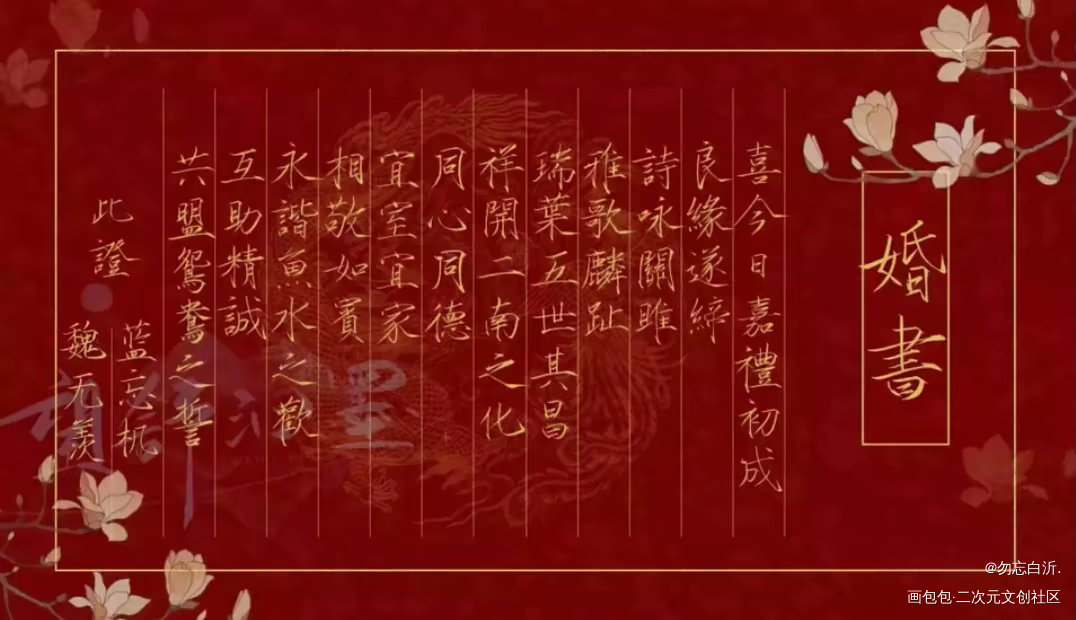 婚書
喜今日嘉禮初成
良緣遂締
詩咏關雎
雅歌麟趾
瑞葉五世其昌
祥開二南之化
同心同德
宜室宜家
相敬如賓
永諧魚水之歡
互助精誠
共盟鴛鴦之誓
此證
蓝忘机
魏无羡
@勿忘白沂.
画包包·二次元文创社区